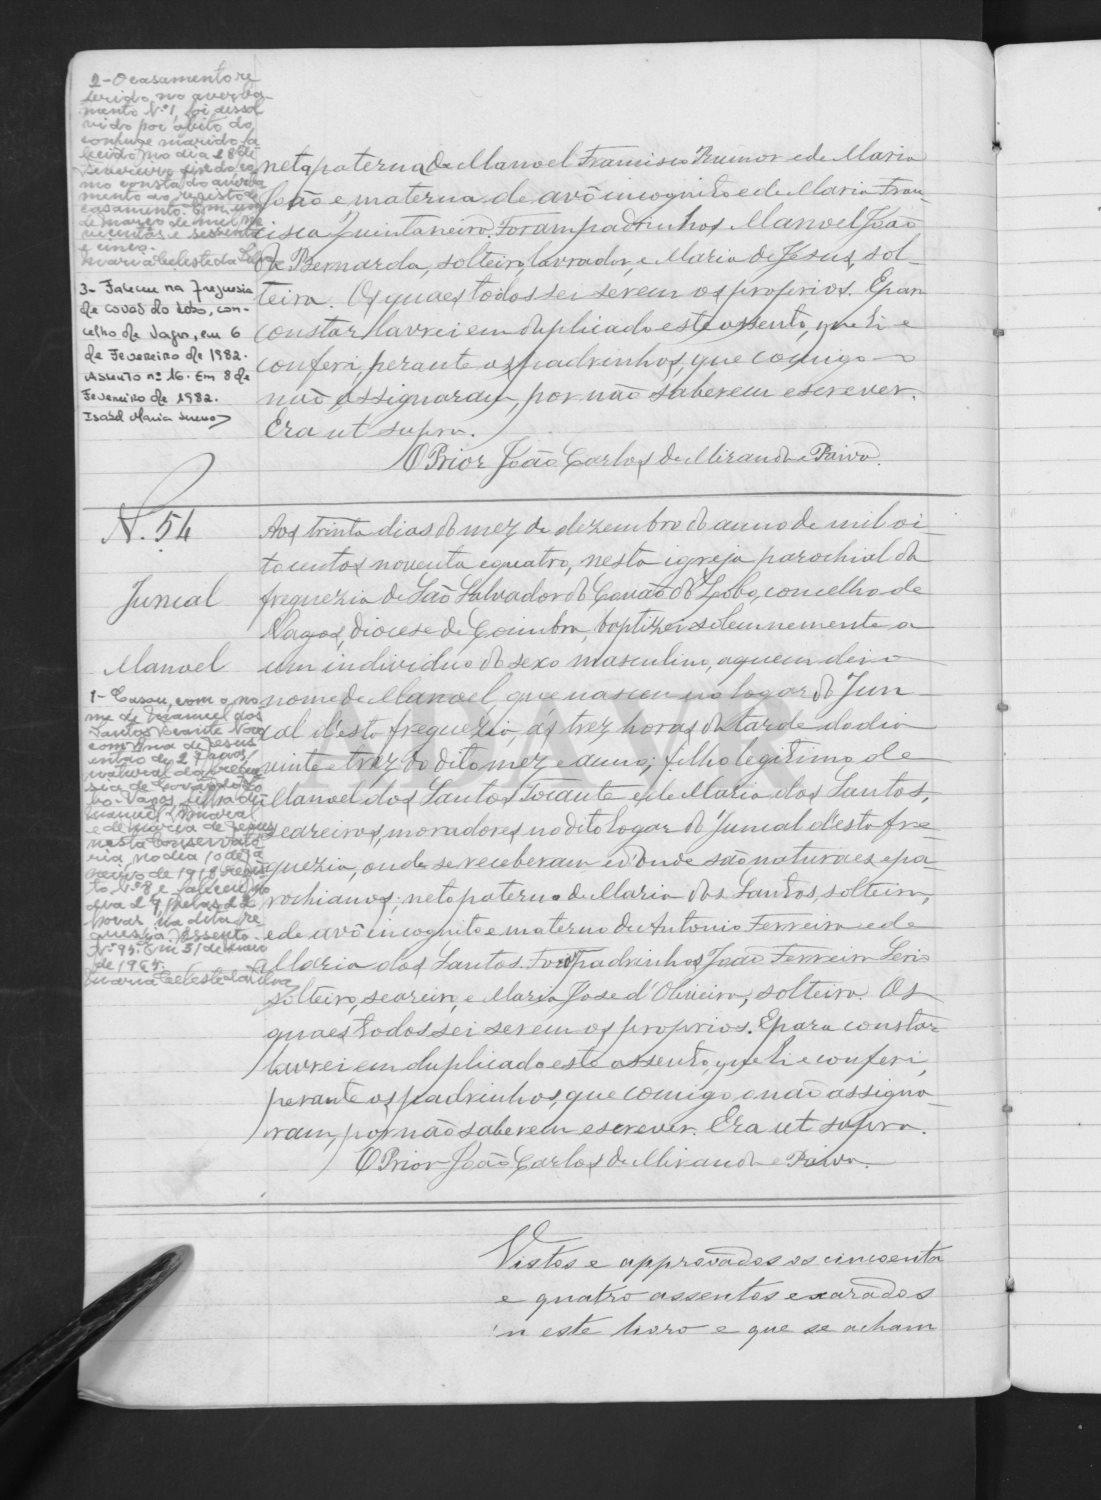 2- O casamento re
ferido no averba-
mento Nº 1, foi dissol
vido por óbito do
conjuge marido, fa
lecido no dia 28 de
Fevereiro findo, co
mo consta do averba
mento ao registo de
casamento. Em um
de março de mil no
vecentos e sessenta
e cinco.
Maria Celeste da Silva
3- Faleceu na freguesia
de Covão do Lobo, con-
celho de Vagos, em 6
de Fevereiro de 1982.
Assento nº 16. Em 8 de
Fevereiro de 1982.
Isabel Maria
neta paterna de Manoel Francisco Rumor e de Maria
João e materna de avô incognito e de Maria Fran-
cisca Quintaneiro. Foram padrinhos Manoel João
de Bernarda, solteiro, lavrador, e Maria de Jesus, sol-
teira. Os quaes todos sei serem os proprios. E para
constar lavrei em duplicado este assento, que li e
conferi, perante os padrinhos, que comigo
não assignaram, por não saberem escrever.
Era ut supra.
O Prior João Carlos de Miranda e Paiva.
N. 54
Juncal
Manoel
1- Casou, com o no
me de Manuel dos
Santos Tocante Novo
com Ana de Jesus
então de 27 anos,
natural da fregue
sia de Covão do Lo
bo-Vagos, filha de
Manuel
e de Maria de Jesus
nesta Conservató
ria, no dia 10 de Ja
neiro de 1918
to Nº 8 e faleceu no
dia 29 pelas 22
horas, na dita fre
guesia. Assento
Nº 95. Em 31 de
de 1965.
Maria Celeste da Silva
Aos trinta dias do mez de dezembro do anno de mil oi-
tocentos noventa e quatro, nesta igreja parochial da
freguezia de São Salvador do Covão do Lobo, concelho de
Vagos, diocese de Coimbra, baptizei solemnemente a
um individuo do sexo masculino, a quem dei o
nome de Manoel, que nasceu no logar do Jun-
cal d'esta freguezia, ás trez horas da tarde do dia
vinte e trez do dito mez e anno; filho legitimo de
Manoel dos Santos Tocante e de Maria dos Santos,
seareiros, moradores no dito logar do Juncal d'esta fre-
guezia, onde se receberam e d'onde são naturaes e pa-
rochianos; neto paterno de Maria dos Santos, solteira,
e de avô incognito e materno de Antonio Ferreira e de
Maria dos Santos. Foram padrinhos João Ferreira
solteiro, seareiro, e Maria Jose d'Oliveira, solteira. Os
quaes todos sei serem os proprios. E para constar
lavrei em duplicado este assento, que li e conferi,
perante os padrinhos, que comigo não assigna-
ram, por não saberem escrever. Era ut supra.
O Prior João Carlos de Miranda e Paiva.
Vistos e approvados os cincoenta
e quatro assentos exarados
n'este livro e que se acham
ADAVR